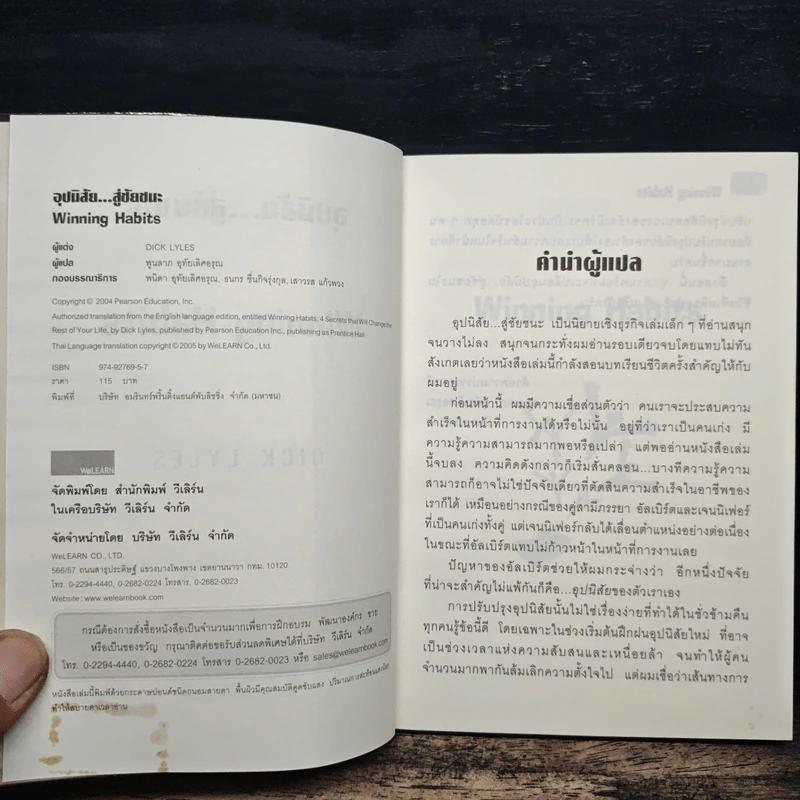 อุปนิสัย...สู่ชัยชนะ
Winning Habits
ผู้แต่ง DICK LYLES
ผู้แปล พูนลาภ อุทัยเลิศอรุณ
กองบรรณาธิการ พนิดา อุทัยเลิศอรุณ, ธนกร ชื่นกิจรุ่งกุล, เสาวรส แก้วพวง
Copyright © 2004 Pearson Education, Inc.
Authorized translation from the English language edition, entitled Winning Habits; 4 Secrets that Will Change the
Rest of Your Life, by Dick Lyles, published by Pearson Education Inc., publishing as Prentice Hall
Thai Language translation copyright © 2005 by WeLEARN Co., Ltd.
ISBN 974-92769-5-7
ราคา 115 บาท
พิมพ์ที่ บริษัท อมรินทร์พริ้นติ้งแอนด์พับลิชชิ่ง จำกัด (มหาชน)
WeLEARN
จัดพิมพ์โดย สำนักพิมพ์ วีเลิร์น
ในเครือบริษัท วีเลิร์น จำกัด
จัดจำหน่ายโดย บริษัท วีเลิร์น จำกัด
WeLEARN CO., LTD.
566/57 ถนนสาธุประดิษฐ์ แขวงบางโพงพาง เขตยานนาวา กทม. 10120
โทร. 0-2294-4440, 0-2682-0224 โทรสาร 0-2682-0023
Website : www.welearnbook.com
กรณีต้องการสั่งซื้อหนังสือเป็นจำนวนมากเพื่อการฝึกอบรม พัฒนาองค์กร ขาย
หรือเป็นของขวัญ กรุณาติดต่อขอรับส่วนลดพิเศษได้ที่บริษัท วีเลิร์น จำกัด
โทร. 0-2294-4440, 0-2682-0224 โทรสาร 0-2682-0023 หรือ sales@welearnbook.com
หนังสือเล่มนี้พิมพ์ด้วยกระดาษปอนด์ชนิดถนอมสายตา พื้นผิวมีคุณสมบัติดูดซับแสง ปริมาณการสะท้อนแสงน้อย
ทำให้สบายตาเวลาอ่าน
คำนำผู้แปล
อุปนิสัย...สู่ชัยชนะ เป็นนิยายเชิงธุรกิจเล่มเล็ก ๆ ที่อ่านสนุก
จนวางไม่ลง สนุกจนกระทั่งผมอ่านรอบเดียวจบโดยแทบไม่ทัน
สังเกตเลยว่าหนังสือเล่มนี้กำลังสอนบทเรียนชีวิตครั้งสำคัญให้กับ
ผมอยู่
ก่อนหน้านี้ ผมมีความเชื่อส่วนตัวว่า คนเราจะประสบความ
สำเร็จในหน้าที่การงานได้หรือไม่นั้น อยู่ที่ว่าเราเป็นคนเก่ง มี
ความรู้ความสามารถมากพอหรือเปล่า แต่พออ่านหนังสือเล่ม
นี้จบลง ความคิดดังกล่าวก็เริ่มสั่นคลอน...บางทีความรู้ความ
สามารถก็อาจไม่ใช่ปัจจัยเดียวที่ตัดสินความสำเร็จในอาชีพของ
เราก็ได้ เหมือนอย่างกรณีของคู่สามีภรรยา อัลเบิร์ตและเจนนิเฟอร์
ที่เป็นคนเก่งทั้งคู่ แต่เจนนิเฟอร์กลับได้เลื่อนตำแหน่งอย่างต่อเนื่อง
ในขณะที่อัลเบิร์ตแทบไม่ก้าวหน้าในหน้าที่การงานเลย
ปัญหาของอัลเบิร์ตช่วยให้ผมกระจ่างว่า อีกหนึ่งปัจจัย
ที่น่าจะสำคัญไม่แพ้กันก็คือ...อุปนิสัยของตัวเราเอง
การปรับปรุงอุปนิสัยนั้นไม่ใช่เรื่องง่ายที่ทำได้ในชั่วข้ามคืน
ทุกคนรู้ข้อนี้ดี โดยเฉพาะในช่วงเริ่มต้นฝึกฝนอุปนิสัยใหม่ ที่อาจ
เป็นช่วงเวลาแห่งความสับสนและเหนื่อยล้า จนทำให้ผู้คน
จำนวนมากพากันล้มเลิกความตั้งใจไป แต่ผมเชื่อว่าเส้นทางการ